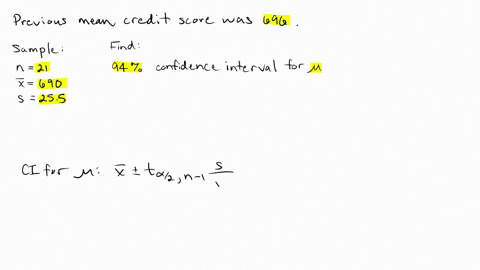 Previous mean credit score was 696.
Sample:
n = 21
x̄ = 690
s = 25.5
Find:
94% confidence interval for μ
CI for μ: x̄ ± t α/2, n-1 s